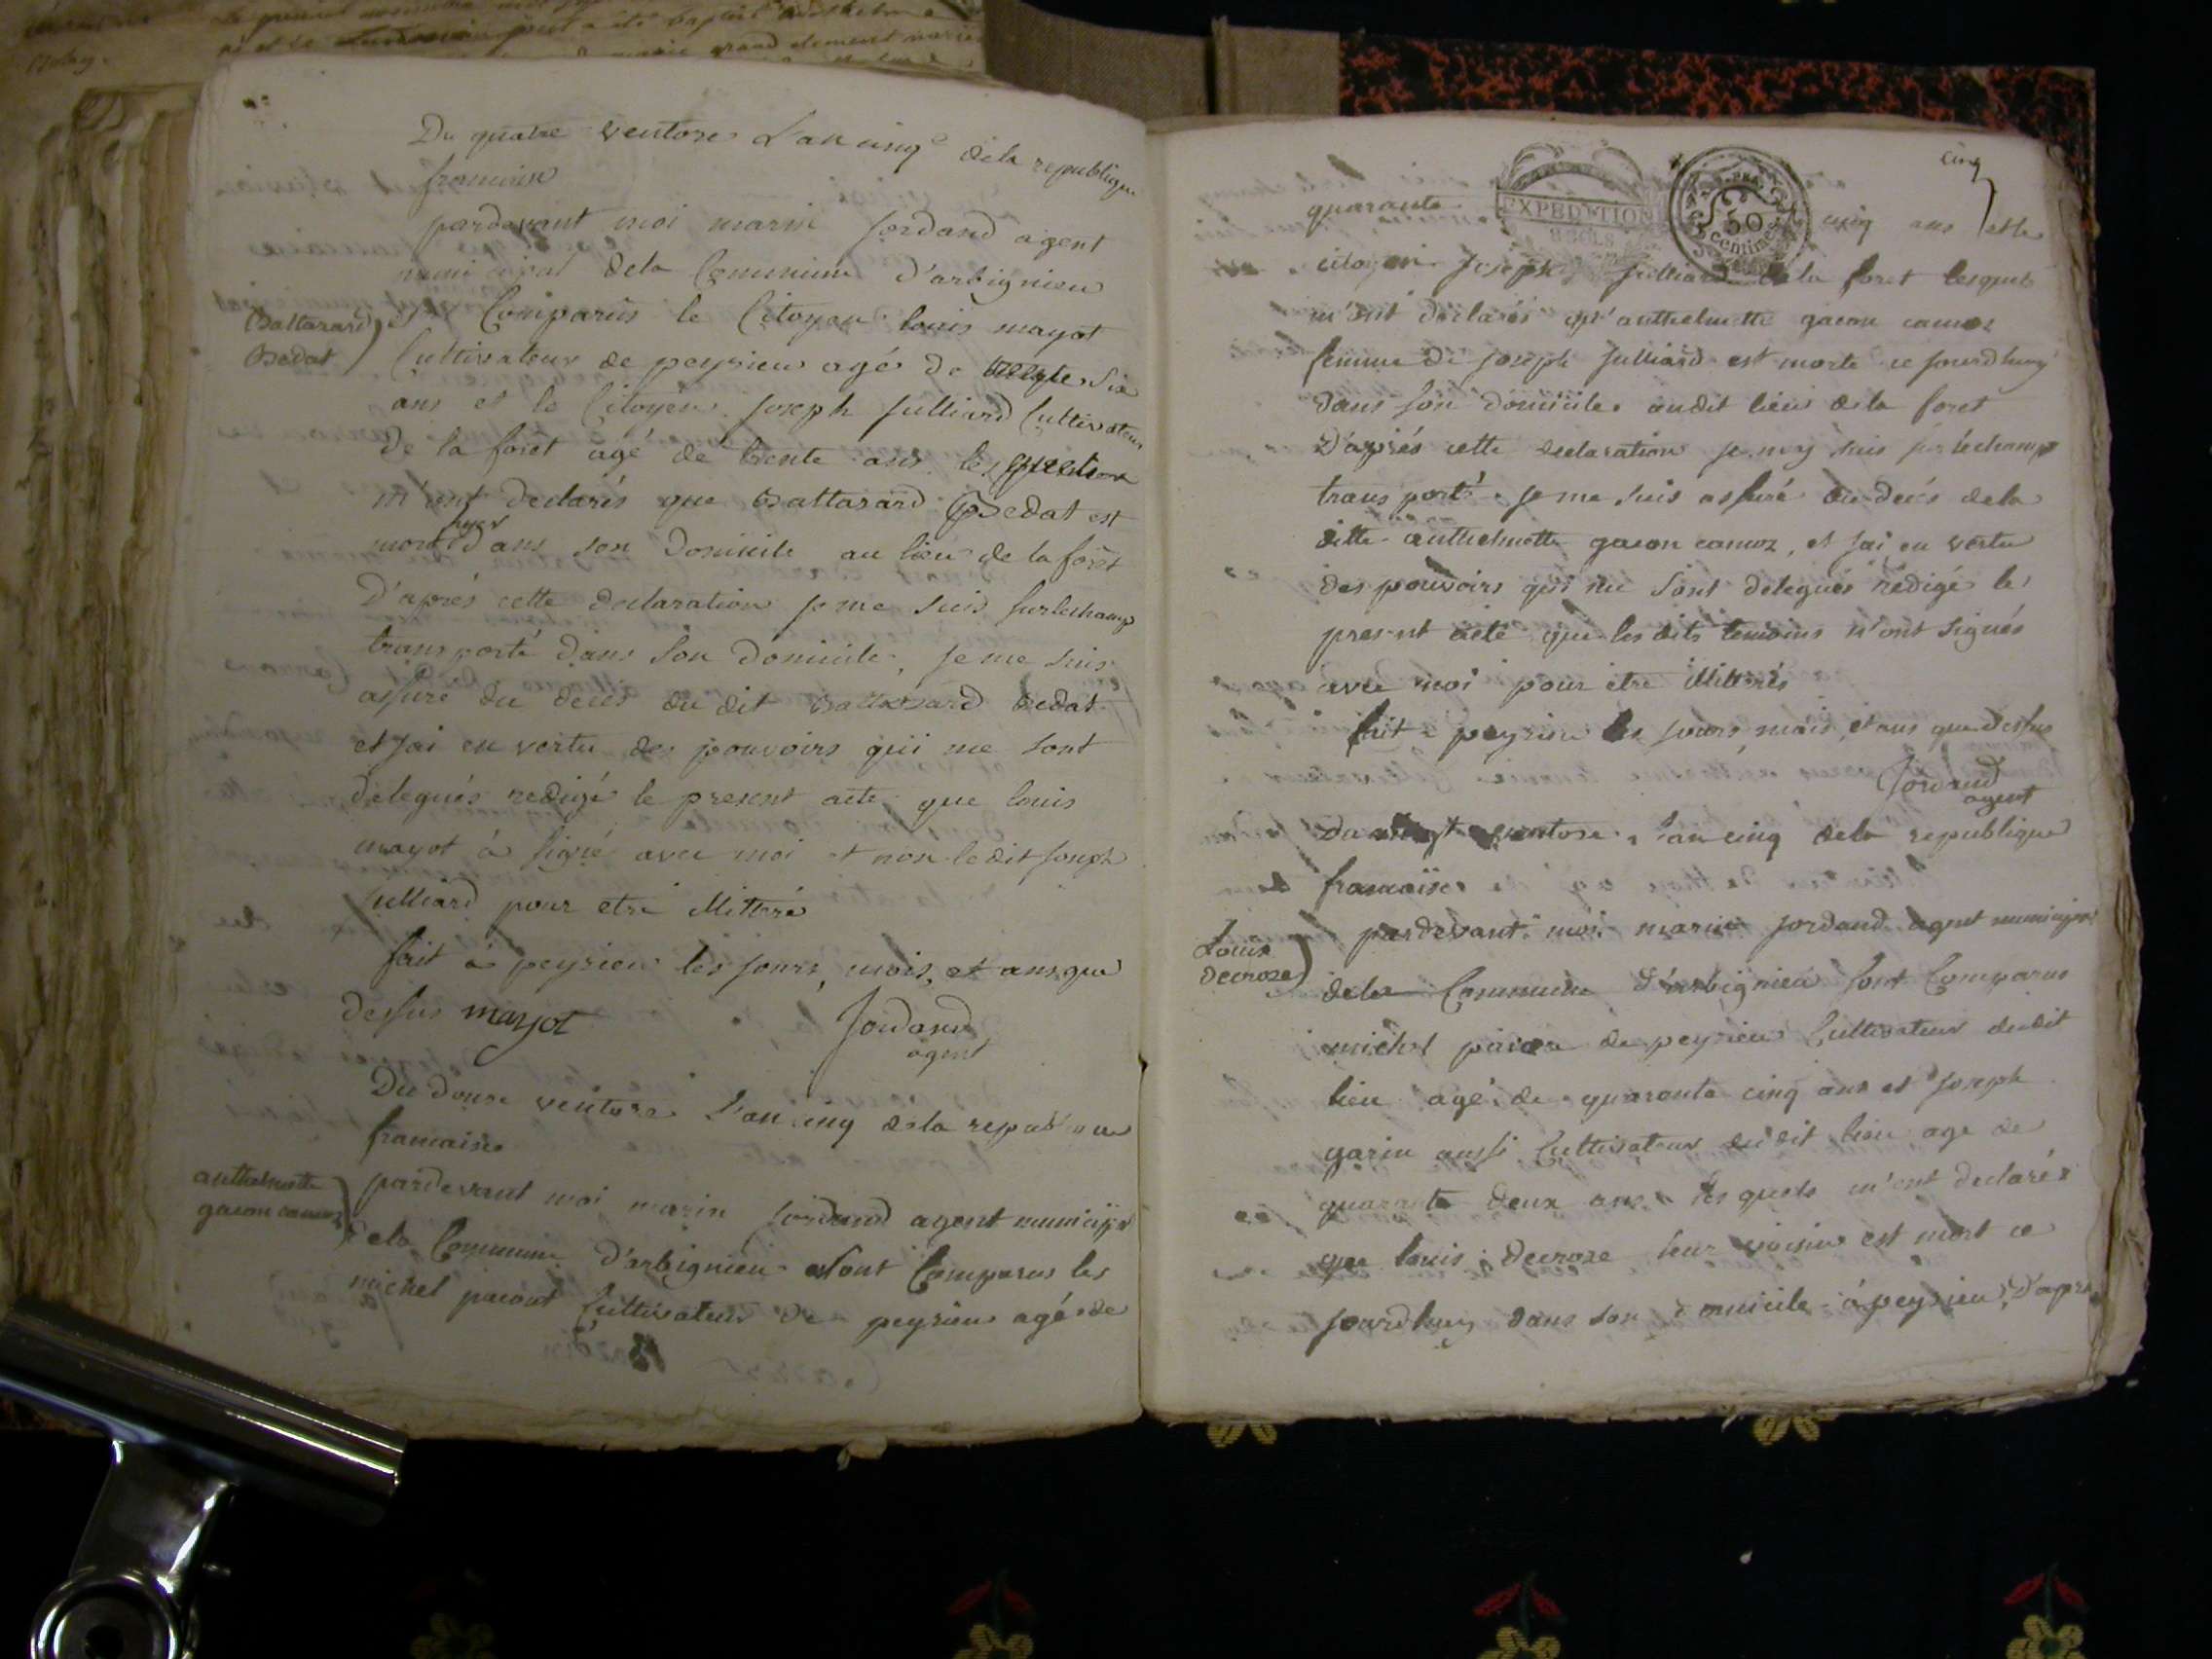 Du quatre ventose L'an cinq de la republique
francaise
pardevant moi marin Jordand agent
municipal dela Commune d'arbignieu
Baltazard
Bedat
est Comparus le Citoyen louis mayot
Cultivateur de peyrieu agé de six
ans et le Citoyen Joseph Julliard Cultivateur
De la foret agé de trente ans lesquels
m'ont declarés que Baltasard Bedat est
mort hyer dans son Domicile au lieu de la forêt
D'aprés cette declaration je me suis surlechamp
transporté dans son domicile, je me suis
assuré du decés du dit Baltasard Bedat
et jai en vertu des pouvoirs qui me sont
delegués redigé le present acte que louis
mayot à signé avec moi et non ledit Joseph
Julliard pour etre illitteré
fait à peyrieu les jours, mois, et ans que
dessus mayot Jordand
agent
Du douze ventose L'an cinq dela republique
francaise
anthelmette
gacon camoz
pardevant moi marin Jordand agent municipal
dela Commune D'arbignieu sont Comparus les
michel Cultivateur de peyrieu agé de
cinq
quarante EXPEDITION 50 centimes cinq ans et le
citoyen Joseph Julliard de la foret lesquels
m'ont declarés qu'anthelmette gacon camoz
femme de Joseph Julliard est morte ce jourdhuy
dans son domicile audit lieu de la foret
D'aprés cette declaration je my suis surlechamp
transporté je me suis assuré du decés dela
ditte anthelmette gacon camoz, et jai en vertu
des pouvoirs qui me sont delegués redigé le
present acte que les dits temoins n'ont signés
avec moi pour etre illitterés
fait à peyrieu les jours, mois, et ans que dessus
Jordand
agent
Du ventose L'an cinq dela republique
francaise
Louis
Decroze
pardevant moi marin Jordand agent municipal
dela Commune d'arbignieu sont Comparus
michel de peyrieu Cultivateur dudit
lieu agé de quarante cinq ans et Joseph
garin aussi Cultivateur du dit lieu age de
quarante deux ans lesquels m'ont declarés
que louis Decroze leur voisin est mort ce
jourdhuy dans son domicile à peyrieu, D'aprés